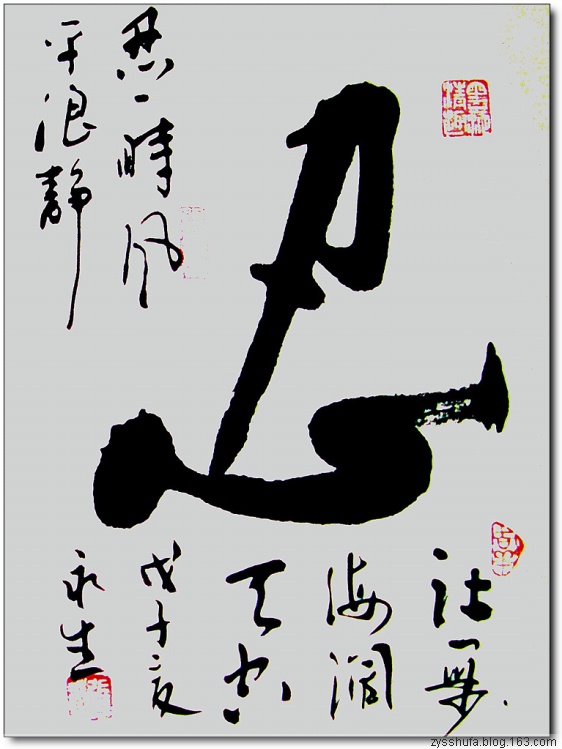 忍
忍一時风
平浪静
让一步
海阔
天空
戊子夏
永生
zysshufa.blog.163.com